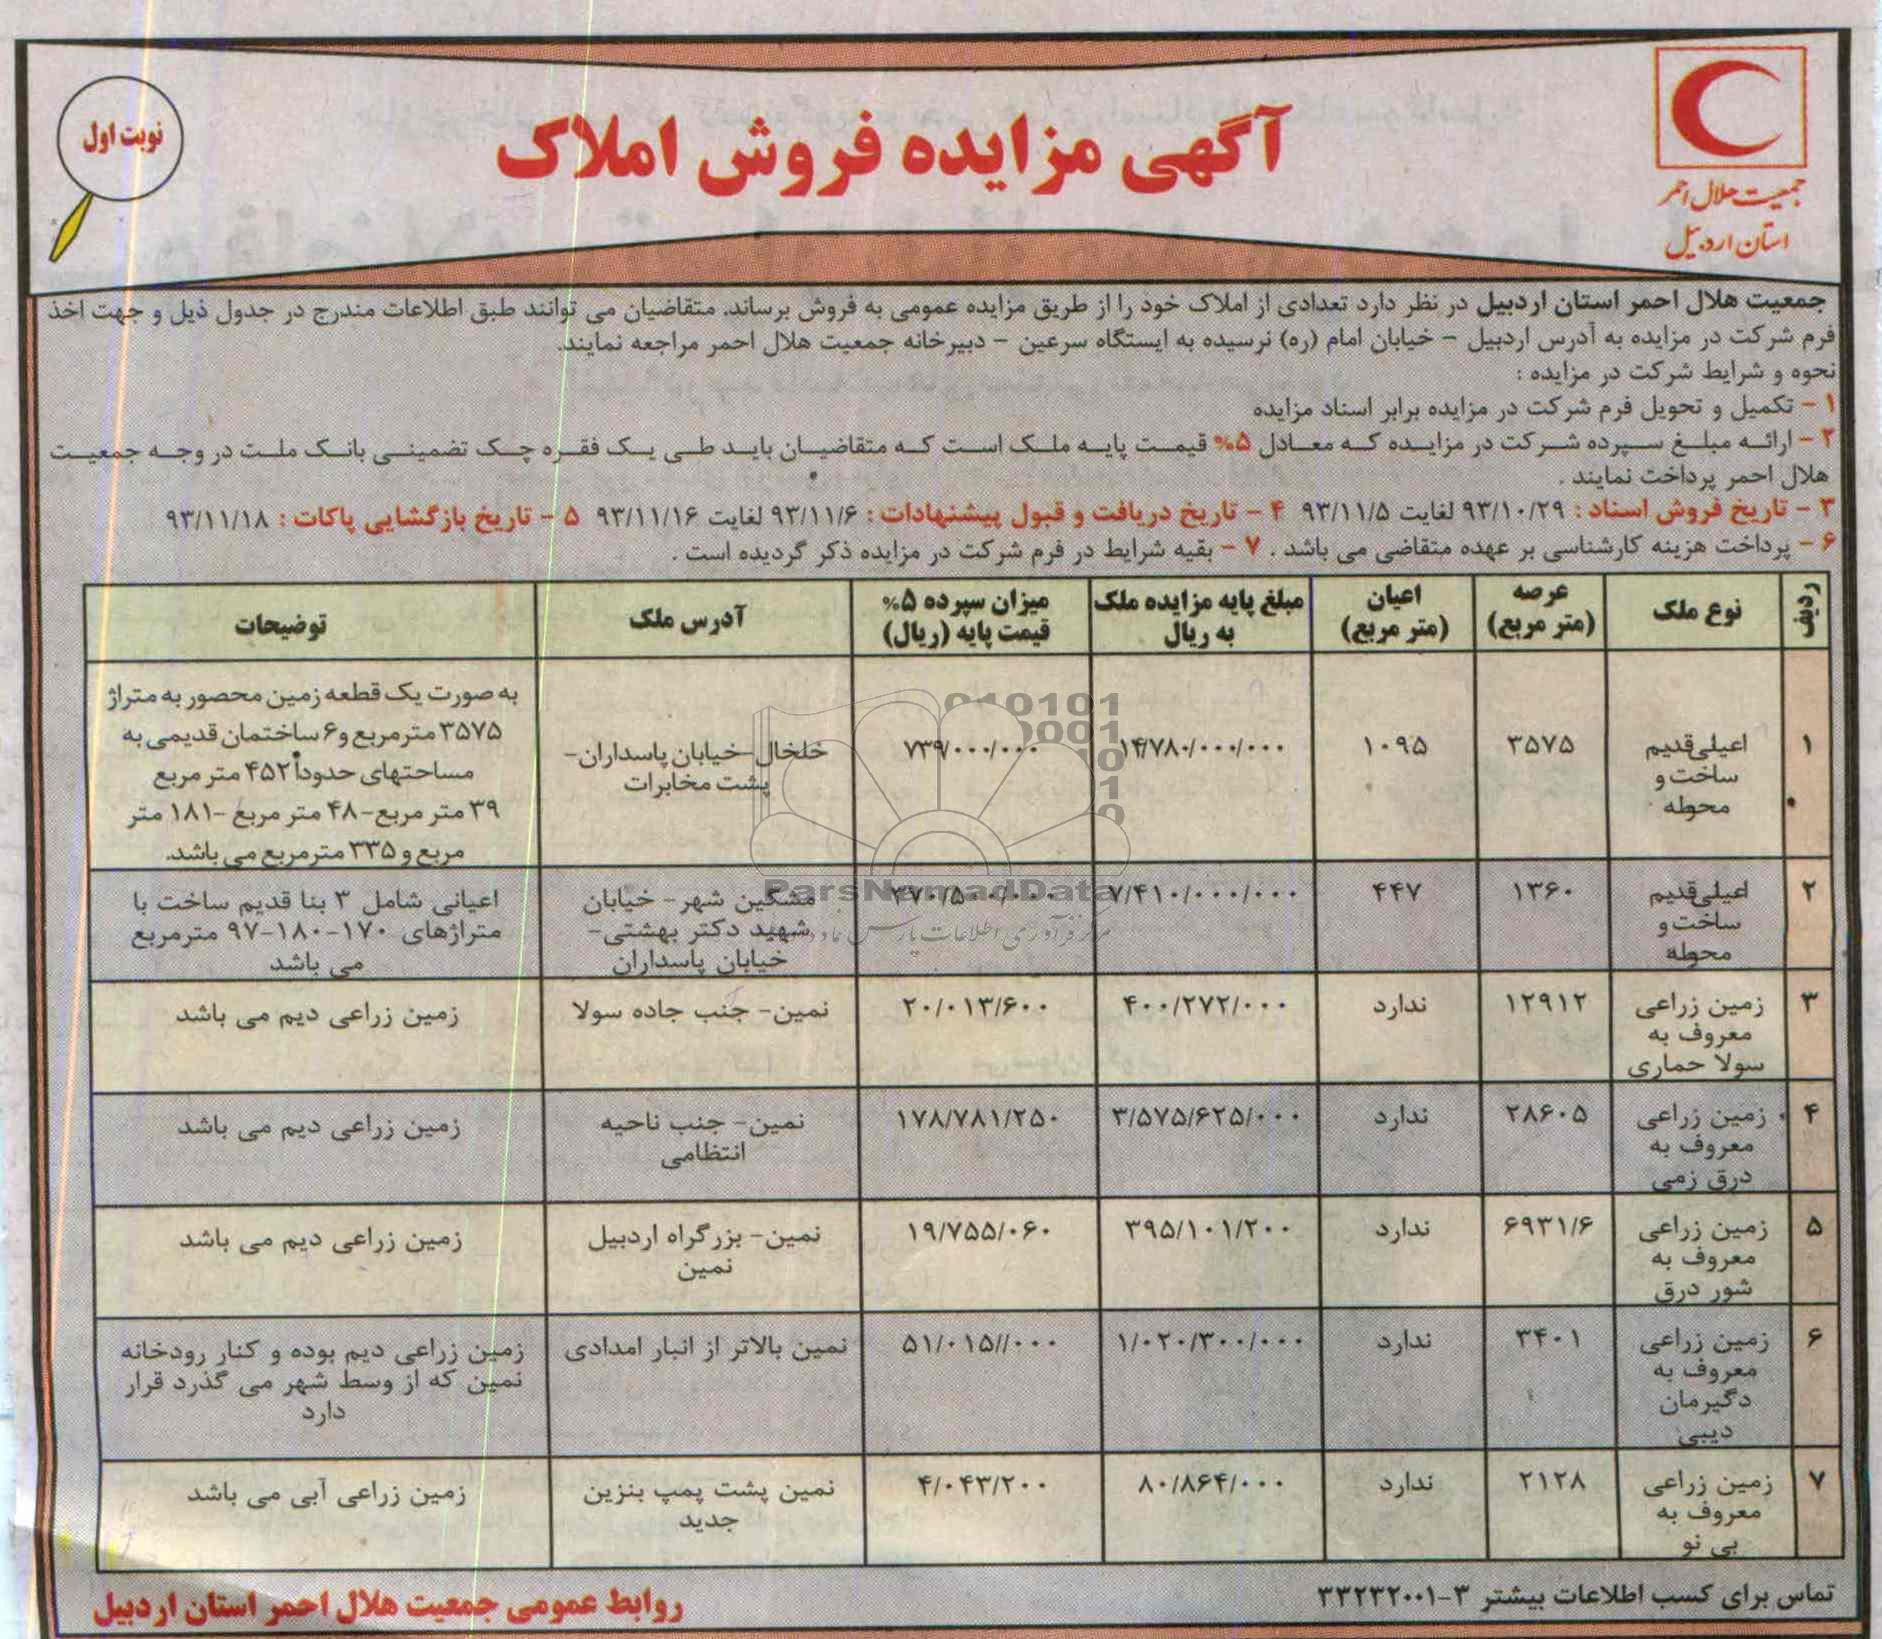 جمعیت هلال احمر
استان اردبیل
آگهی مزایده فروش املاک
نوبت اول
جمعیت هلال احمر استان اردبیل در نظر دارد تعدادی از املاک خود را از طریق مزایده عمومی به فروش برساند. متقاضیان می توانند طبق اطلاعات مندرج در جدول ذیل و جهت اخذ
فرم شرکت در مزایده به آدرس اردبیل - خیابان امام (ره) نرسیده به ایستگاه سرعین - دبیرخانه جمعیت هلال احمر مراجعه نمایند.
نحوه و شرایط شرکت در مزایده :
۱ - تکمیل و تحویل فرم شرکت در مزایده برابر اسناد مزایده
۲ - ارائه مبلغ سپرده شرکت در مزایده که معادل ۵% قیمت پایه ملک است که متقاضیان باید طی یک فقره چک تضمینی بانک ملت در وجه جمعیت
هلال احمر پرداخت نمایند .
۳ - تاریخ فروش اسناد : ۹۳/۱۰/۲۹ لغایت ۹۳/۱۱/۵ ۴ - تاریخ دریافت و قبول پیشنهادات : ۹۳/۱۱/۶ لغایت ۹۳/۱۱/۱۶ ۵ - تاریخ بازگشایی پاکات : ۹۳/۱۱/۱۸
۶ - پرداخت هزینه کارشناسی بر عهده متقاضی می باشد . ۷ - بقیه شرایط در فرم شرکت در مزایده ذکر گردیده است .
ردیف
نوع ملک
عرصه
(متر مربع)
اعیان
(متر مربع)
مبلغ پایه مزایده ملک
به ریال
میزان سپرده ۵%
قیمت پایه (ریال)
آدرس ملک
توضیحات
۱
اعیلی قدیم
ساخت و
محوطه
۳۵۷۵
۱۰۹۵
۱۴/۷۸۰/۰۰۰/۰۰۰
۷۳۹/۰۰۰/۰۰۰
خلخال-خیابان پاسداران-
پشت مخابرات
به صورت یک قطعه زمین محصور به متراژ
۳۵۷۵ مترمربع و ۶ ساختمان قدیمی به
مساحتهای حدوداً ۴۵۲ متر مربع
۳۹ متر مربع-۴۸ متر مربع -۱۸۱ متر
مربع و ۳۳۵ مترمربع می باشد.
۲
اعیلی قدیم
ساخت و
محوطه
۱۳۶۰
۴۴۷
۷/۴۱۰/۰۰۰/۰۰۰
۳۷۰/۵۰۰/۰۰۰
مشگین شهر- خیابان
شهید دکتر بهشتی-
خیابان پاسداران
اعیانی شامل ۳ بنا قدیم ساخت با
متراژهای ۱۷۰-۱۸۰-۹۷ مترمربع
می باشد
۳
زمین زراعی
معروف به
سولا حماری
۱۲۹۱۲
ندارد
۴۰۰/۲۷۲/۰۰۰
۲۰/۰۱۳/۶۰۰
نمین- جنب جاده سولا
زمین زراعی دیم می باشد
۴
زمین زراعی
معروف به
درق زمی
۲۸۶۰۵
ندارد
۳/۵۷۵/۶۲۵/۰۰۰
۱۷۸/۷۸۱/۲۵۰
نمین- جنب ناحیه
انتظامی
زمین زراعی دیم می باشد
۵
زمین زراعی
معروف به
شور درق
۶۹۳۱/۶
ندارد
۳۹۵/۱۰۱/۲۰۰
۱۹/۷۵۵/۰۶۰
نمین- بزرگراه اردبیل
نمین
زمین زراعی دیم می باشد
۶
زمین زراعی
معروف به
دگیرمان
دیبی
۳۴۰۱
ندارد
۱/۰۲۰/۳۰۰/۰۰۰
۵۱/۰۱۵//۰۰۰
نمین بالاتر از انبار امدادی
زمین زراعی دیم بوده و کنار رودخانه
نمین که از وسط شهر می گذرد قرار
دارد
۷
زمین زراعی
معروف به
بی نو
۲۱۲۸
ندارد
۸۰/۸۶۴/۰۰۰
۴/۰۴۳/۲۰۰
نمین پشت پمپ بنزین
جدید
زمین زراعی آبی می باشد
ParsNamadData
تماس برای کسب اطلاعات بیشتر ۳-۳۳۲۳۲۰۰۱
روابط عمومی جمعیت هلال احمر استان اردبیل